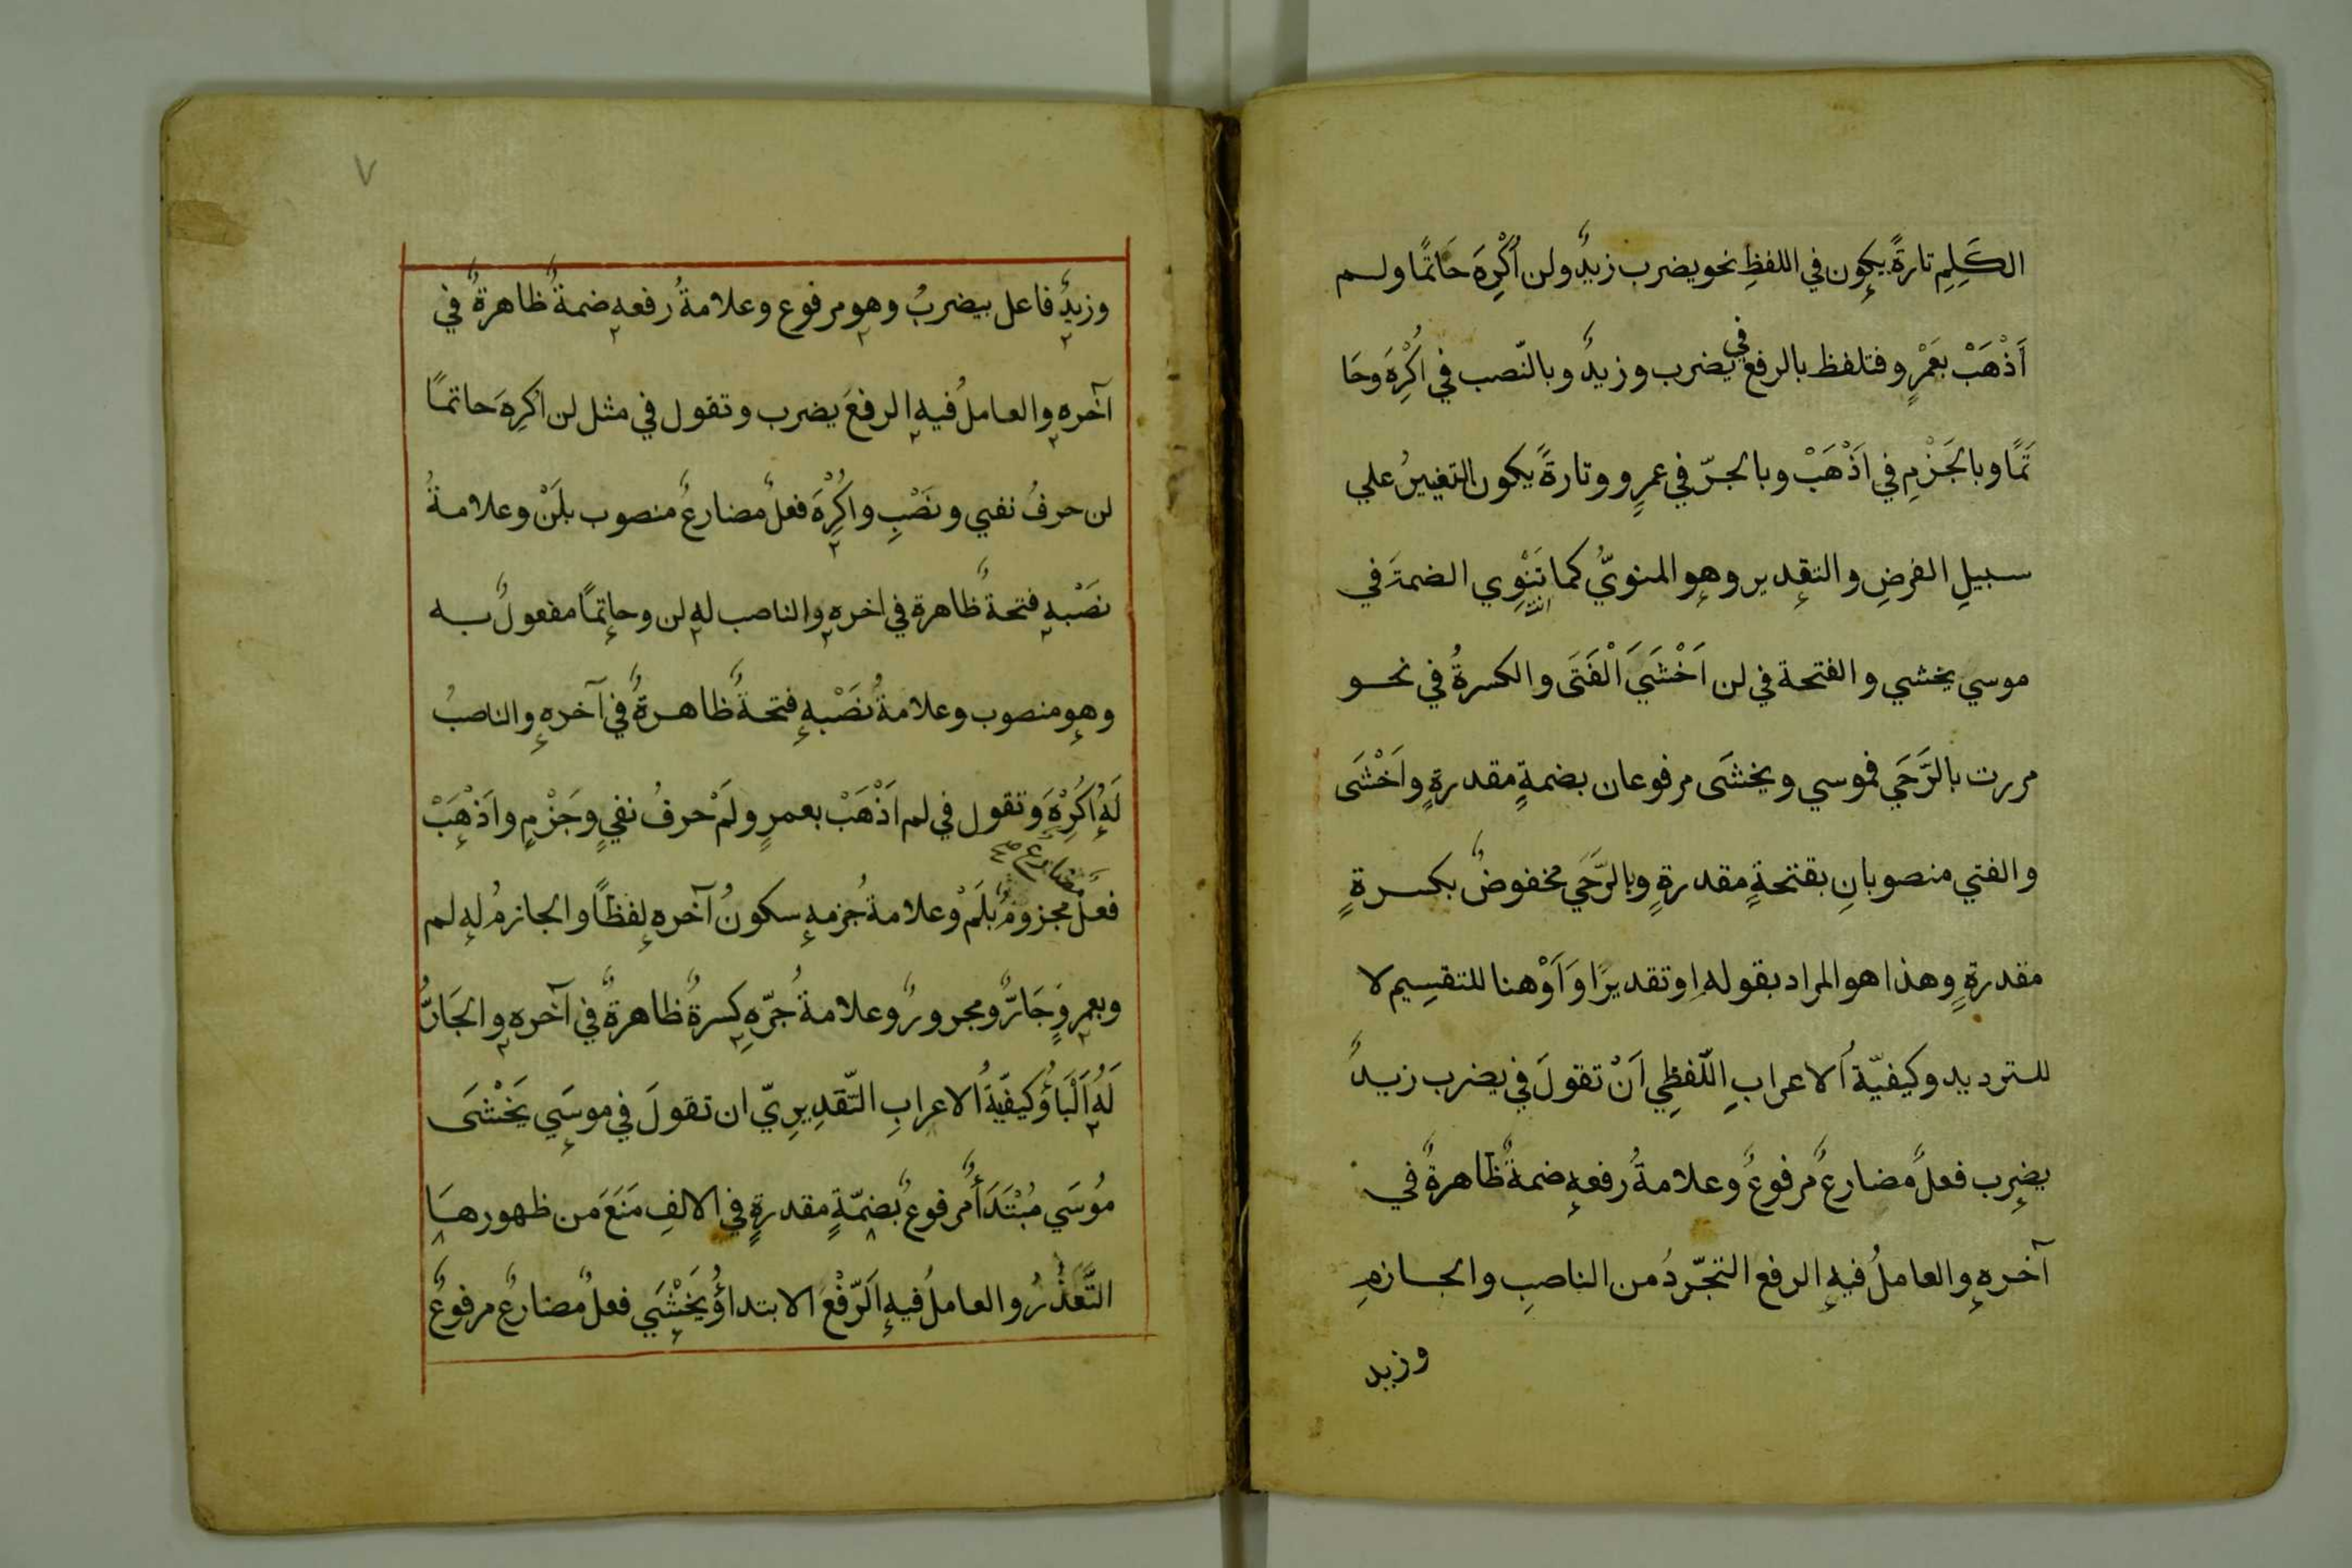 الكَلِمِ تارةً يكون في اللفظِ نحو يضرب زيدٌ ولن أُكْرِهَ حَاتمًا ولم
أَذْهَبْ بعَمْرٍو فتلفظ بالرفع في يضرب وزيدٌ وبالنّصب في اُكْرِهَ وحَا
تَمًا وبالجَزْمِ في اَذْهَبْ وبالجرّ في عمرٍو وتارةً يكون التغييرُ علي
سبيلِ الفرضِ والتقدير وهو المنويُّ كما تَنْوِي الضمةَ في
موسي يخشي والفتحة في لن اَخْشَيَ اَلْفَتَى والكسرةُ في نحو
مررت بالرَّحَي فموسي ويخشَى مرفوعان بضمةٍ مقدرةٍ واَخْشَى
والفتي منصوبانِ بفتحةٍ مقدرةٍ وبالرَّحَي مخفوضٌ بكسرةٍ
مقدرةٍ وهذا هو المراد بقوله اوتقديرًا وَاَوْ هنا للتقسيم لا
للترديد وكيفيّة اُلاعرابِ اللّفظِي اَنْ تقولَ في يضرب زيدٌ
يضرب فعلٌ مضارعٌ مرفوعٌ وعلامةُ رفعهِ ضمةٌ ظاهرةٌ في
آخرهِ والعاملُ فيهِ الرفع التجّردُ من الناصبِ والجازمِ
وزيد
٧
وزيدٌ فاعل بيضربُ وهو مرفوع وعلامةُ رفعهِ ضمةٌ ظاهرةٌ في
آخرهِ والعاملُ فيهِ الرفعَ يضرب وتقول في مثل لن اُكرِهَ حاتمًا
لن حرفُ نفيي ونَصْبِ واُكْرِهَ فعلٌ مضارعٌ منصوب بلَنْ وعلامةُ
نصَبْهِ فتحةٌ ظاهرة في اخرهِ والناصب لهِ لن وحاتمًا مفعولٌ به
وهو منصوب وعلامةُ نصَبْهِ فتحةٌ ظاهرةٌ في آخرهِ والناصبُ
لَهُ اُكْرِهَ وتقول في لم اَذْهَبْ بعمرٍو لَمْ حرفُ نفيٍ وجَزْمٍ واَذْهَبْ
فعلٌ مضارع صح مجزومٌ بلَمْ وعلامةُ جزمهِ سكونُ آخرهِ لفظًا والجازمُ لهِ لم
وبعمرٍو جَارٌّ ومجرورٌ وعلامةُ جُرّهِ كسرةٌ ظاهرةٌ في آخرهِ والجَارُّ
لَهُ اَلْبَاؤُ كيفيّةُ الاعرابِ التّقدِيرِيّ ان تقولَ في موسَي يَخْشَى
مُوسَي مُبْتَدَأٌ مرفوعٌ بضمّةٍ مقدرةٍ في الالفِ مَنَعَ من ظهورهَا
التَّعَذُّرُ والعاملُ فيهِ اَلرّفْعَ الابتداؤُ يَخْشَي فعلٌ مضارعٌ مرفوعٌ